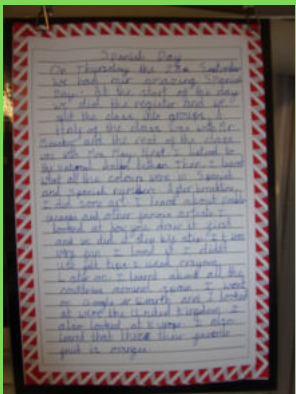 Spanish Day
On Thursday the 27th September
we had our amazing Spanish
Day. At the start of the day
we did the register and we
split the class into groups. A
Half of the class was with Mr.
and the rest of the class
was with Mrs. First I listened to
the national Then I learnt
what all the colours were in Spanish
and Spanish numbers. After breaktime,
I did some art. I learnt about
and other famous artists. I
looked at how you draw it first
and we did it step by step. It was
very fun. I loved it. I didn't
use felt tips I used crayons.
Later on I learnt about all the
countries around Spain. I went
on google earth and I looked
at were the United Kingdom. I
also looked at Europe. I also
learnt that there favourite
fruit is oranges.